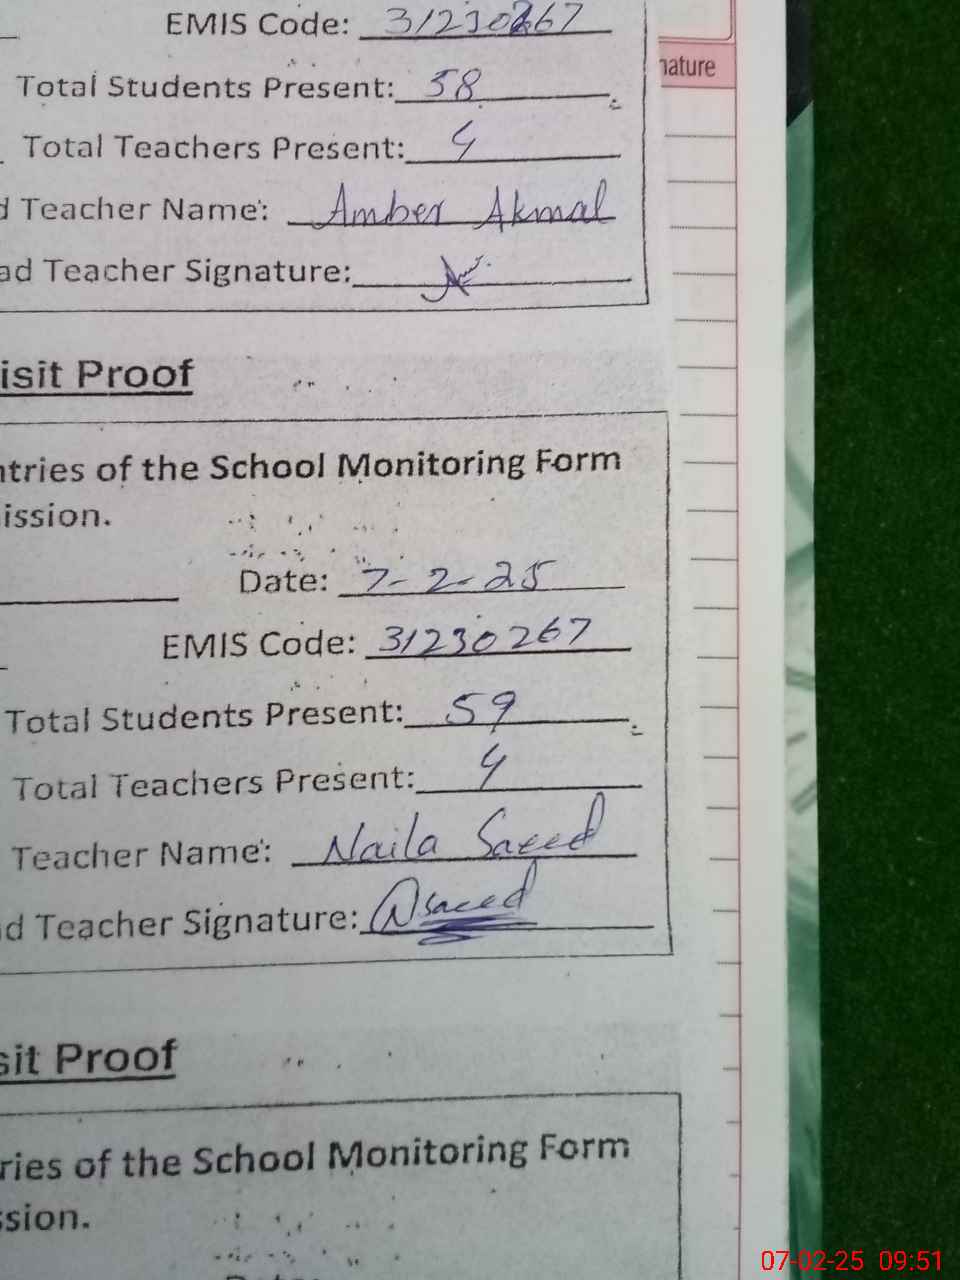 EMIS Code: 31230267
nature
Total Students Present: 58
Total Teachers Present: 4
d Teacher Name: Amber Akmal
ad Teacher Signature:
isit Proof
ntries of the School Monitoring Form
ission.
Date: 7-2-25
EMIS Code: 31230267
Total Students Present: 59
Total Teachers Present: 4
Teacher Name: Naila Saeed
d Teacher Signature: Nsaeed
sit Proof
ries of the School Monitoring Form
ssion.
07-02-25 09:51